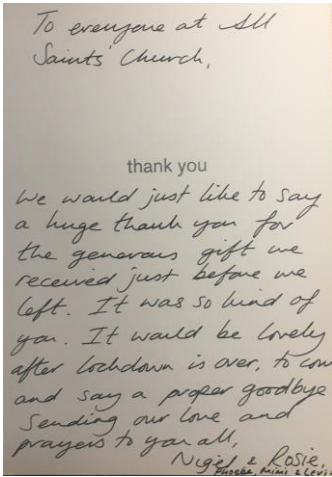 To everyone at All
Saints' Church,
thank you
We would just like to say
a huge thank you for
the generous gift we
received just before we
left. It was so kind of
you. It would be lovely
after lockdown is over, to com
and say a proper goodbye
Sending our love and
prayers to you all,
Nigel & Rosie,
Phoebe, Mimi & Levi